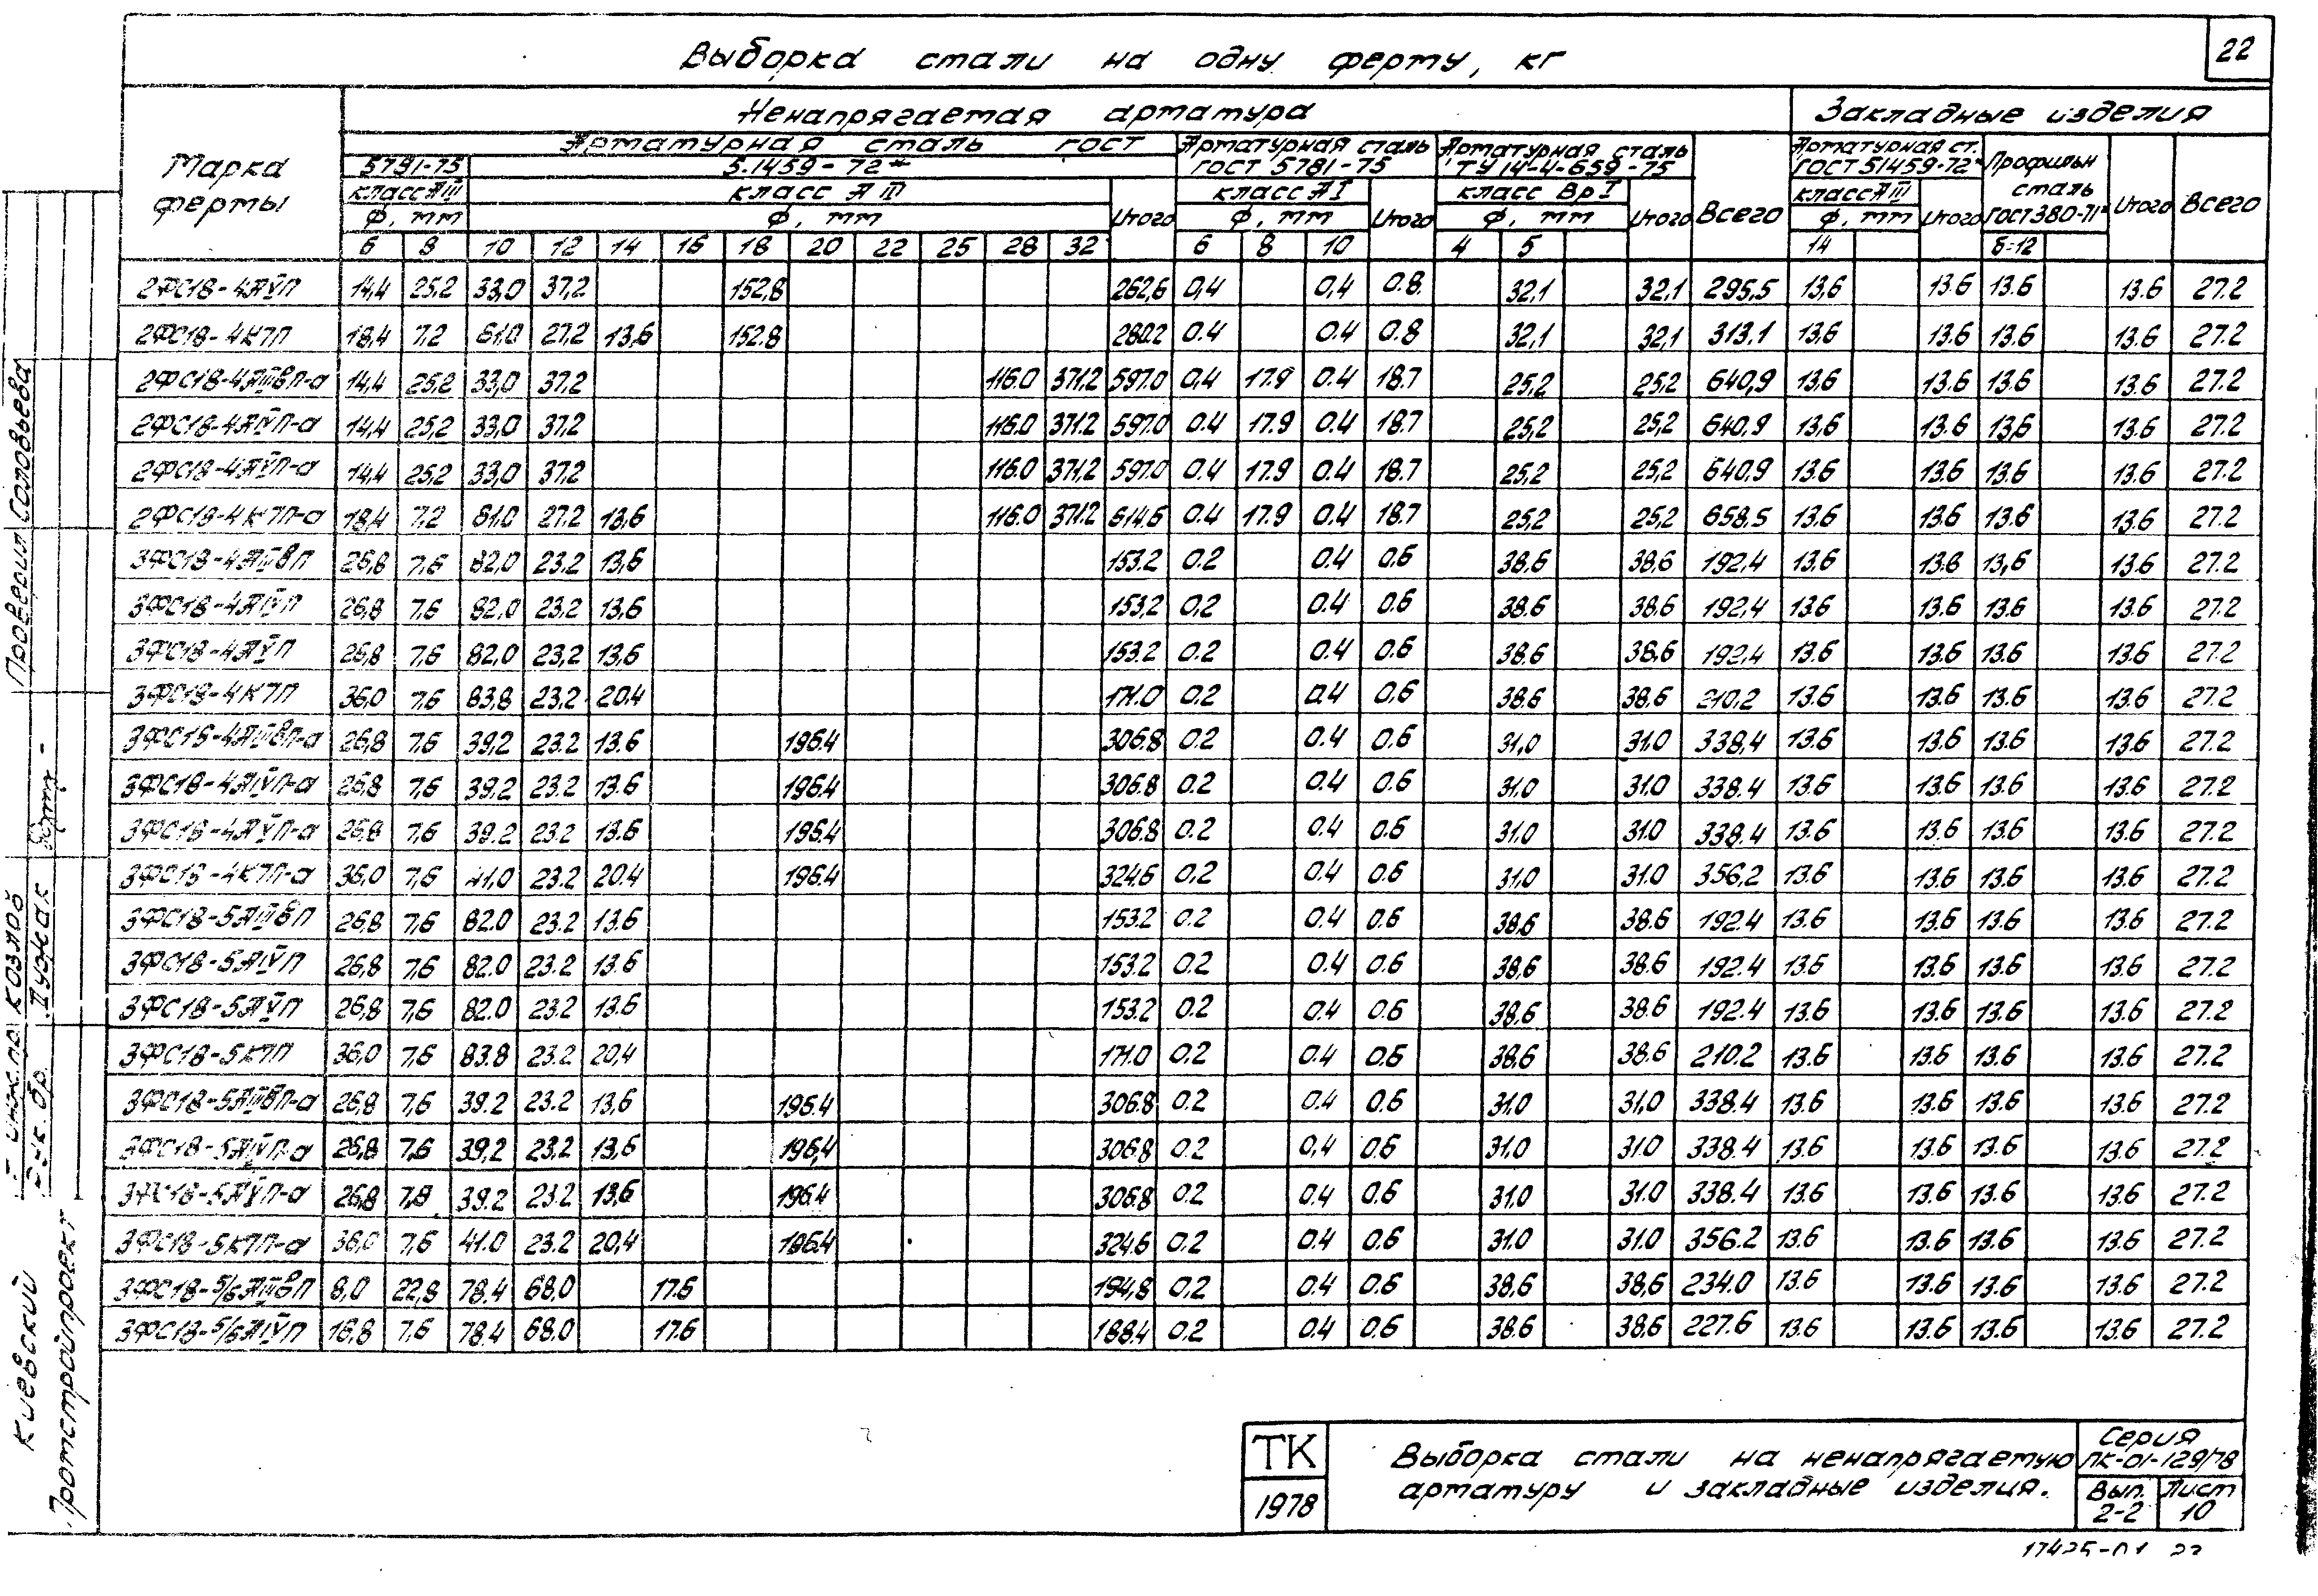 22
Выборка стали на одну ферму, кг
Марка фермы
Ненапрягаемая арматура
Закладные изделия
Арматурная сталь гост
5781-75
5.1459-72*
класс АIII
класс А III
ф, мм
ф, мм
6 8 10 12 14 16 18 20 22 25 28 32
Итого
Арматурная сталь ГОСТ 5781-75
класс А I
ф, мм
6 8 10
Итого
Арматурная сталь ТУ 14-4-659-75
класс Вр I
ф, мм
4 5
Итого
Всего
Арматурная ст. ГОСТ 51459-72*
класс АIII
ф, мм
14
Итого
Профильн сталь ГОСТ 380-71*
б=12
Итого
Всего
2ФС18-4АVП 14,4 25,2 33,0 37,2 152,8 262,6 0,4 0,4 0.8 32,1 32,1 295,5 13,6 13.6 13.6 13.6 27.2
2ФС18-4К7П 18,4 7,2 61.0 27,2 13,6 152.8 280.2 0.4 0.4 0.8 32,1 32,1 313,1 13,6 13.6 13.6 13.6 27.2
2ФС18-4АIIIвП-а 14,4 25,2 33,0 37.2 116.0 371.2 597.0 0,4 17.9 0.4 18.7 25,2 25.2 640,9 13,6 13.6 13.6 13.6 27.2
2ФС18-4АIVП-а 14,4 25,2 33,0 37.2 116.0 371.2 597.0 0.4 17.9 0.4 18.7 25,2 25,2 640,9 13,6 13.6 13,6 13.6 27.2
2ФС18-4АVП-а 14,4 25,2 33,0 37.2 116.0 371.2 597.0 0.4 17.9 0.4 18.7 25,2 25,2 640,9 13.6 13.6 13.6 13.6 27.2
2ФС18-4К7П-а 18,4 7,2 61.0 27.2 13,6 116.0 371.2 614.6 0.4 17.9 0.4 18.7 25,2 25,2 658.5 13.6 13.6 13.6 13.6 27.2
3ФС18-4АIIIвП 26,8 7,6 82,0 23.2 13,6 153.2 0.2 0.4 0.6 38.6 38,6 192,4 13.6 13.6 13,6 13.6 27.2
3ФС18-4АIVП 26,8 7,6 82.0 23,2 13,6 153,2 0,2 0.4 0.6 38.6 38,6 192,4 13.6 13.6 13.6 13.6 27.2
3ФС18-4АVП 26,8 7,6 82,0 23,2 13,6 153.2 0.2 0.4 0.6 38.6 38,6 192,4 13.6 13.6 13.6 13.6 27.2
3ФС18-4К7П 36,0 7,6 83,8 23,2 20,4 171.0 0.2 0.4 0,6 38,6 38,6 210,2 13.6 13.6 13.6 13.6 27.2
3ФС18-4АIIIвП-а 26,8 7,6 39,2 23.2 13.6 196.4 306.8 0.2 0.4 0.6 31,0 31.0 338,4 13.6 13.6 13.6 13.6 27.2
3ФС18-4АIVП-а 26,8 7,6 39,2 23.2 13.6 196.4 306.8 0.2 0.4 0.6 31.0 31.0 338.4 13.6 13.6 13.6 13.6 27.2
3ФС18-4АVП-а 26,8 7,6 39.2 23.2 13.6 196.4 306.8 0.2 0.4 0.6 31.0 31.0 338.4 13.6 13.6 13.6 13.6 27.2
3ФС18-4К7П-а 36,0 7,6 41,0 23.2 20.4 196.4 324.6 0,2 0.4 0.6 31.0 31.0 356,2 13.6 13.6 13.6 13.6 27.2
3ФС18-5АIIIвП 26,8 7,6 82.0 23.2 13.6 153.2 0.2 0.4 0.6 38,6 38.6 192.4 13.6 13.6 13.6 13.6 27.2
3ФС18-5АIVП 26,8 7,6 82.0 23.2 13.6 153.2 0.2 0.4 0.6 38,6 38.6 192.4 13.6 13.6 13.6 13.6 27.2
3ФС18-5АVП 26,8 7,6 82.0 23.2 13.6 153.2 0.2 0.4 0.6 38,6 38.6 192.4 13.6 13.6 13.6 13.6 27.2
3ФС18-5К7П 36,0 7,6 83.8 23.2 20,4 171.0 0.2 0.4 0.6 38,6 38.6 210.2 13.6 13.6 13.6 13.6 27.2
3ФС18-5АIIIвП-а 26,8 7,6 39.2 23.2 13,6 196.4 306.8 0.2 0.4 0.6 31.0 31,0 338.4 13.6 13.6 13.6 13.6 27.2
3ФС18-5АIVП-а 26,8 7,6 39,2 23,2 13,6 196,4 306.8 0.2 0,4 0.6 31.0 31.0 338.4 13.6 13.6 13.6 13.6 27.2
3ФС18-5АVП-а 26,8 7,8 39.2 23.2 13,6 196.4 306.8 0.2 0.4 0.6 31.0 31.0 338.4 13.6 13.6 13.6 13.6 27.2
3ФС18-5К7П-а 36,0 7,6 41.0 23.2 20,4 196.4 324.6 0.2 0.4 0.6 31.0 31.0 356.2 13.6 13.6 13.6 13.6 27.2
3ФС18-5/6АIIIвП 8,0 22,8 78.4 68.0 17.6 194,8 0,2 0.4 0.6 38.6 38,6 234.0 13.6 13.6 13.6 13.6 27.2
3ФС18-5/6АIVП 16,8 7,6 78.4 68.0 17.6 188.4 0.2 0.4 0.6 38.6 38.6 227.6 13.6 13.6 13.6 13.6 27.2
Проверил Соловьева
инж.пр. Козлов
Рук. бр. Пужак
Киевский
Промстройпроект
ТК
1978
Выборка стали на ненапрягаемую
арматуру и закладные изделия.
Серия
ПК-01-129/78
Вып. 2-2
Лист 10
17425-01 23